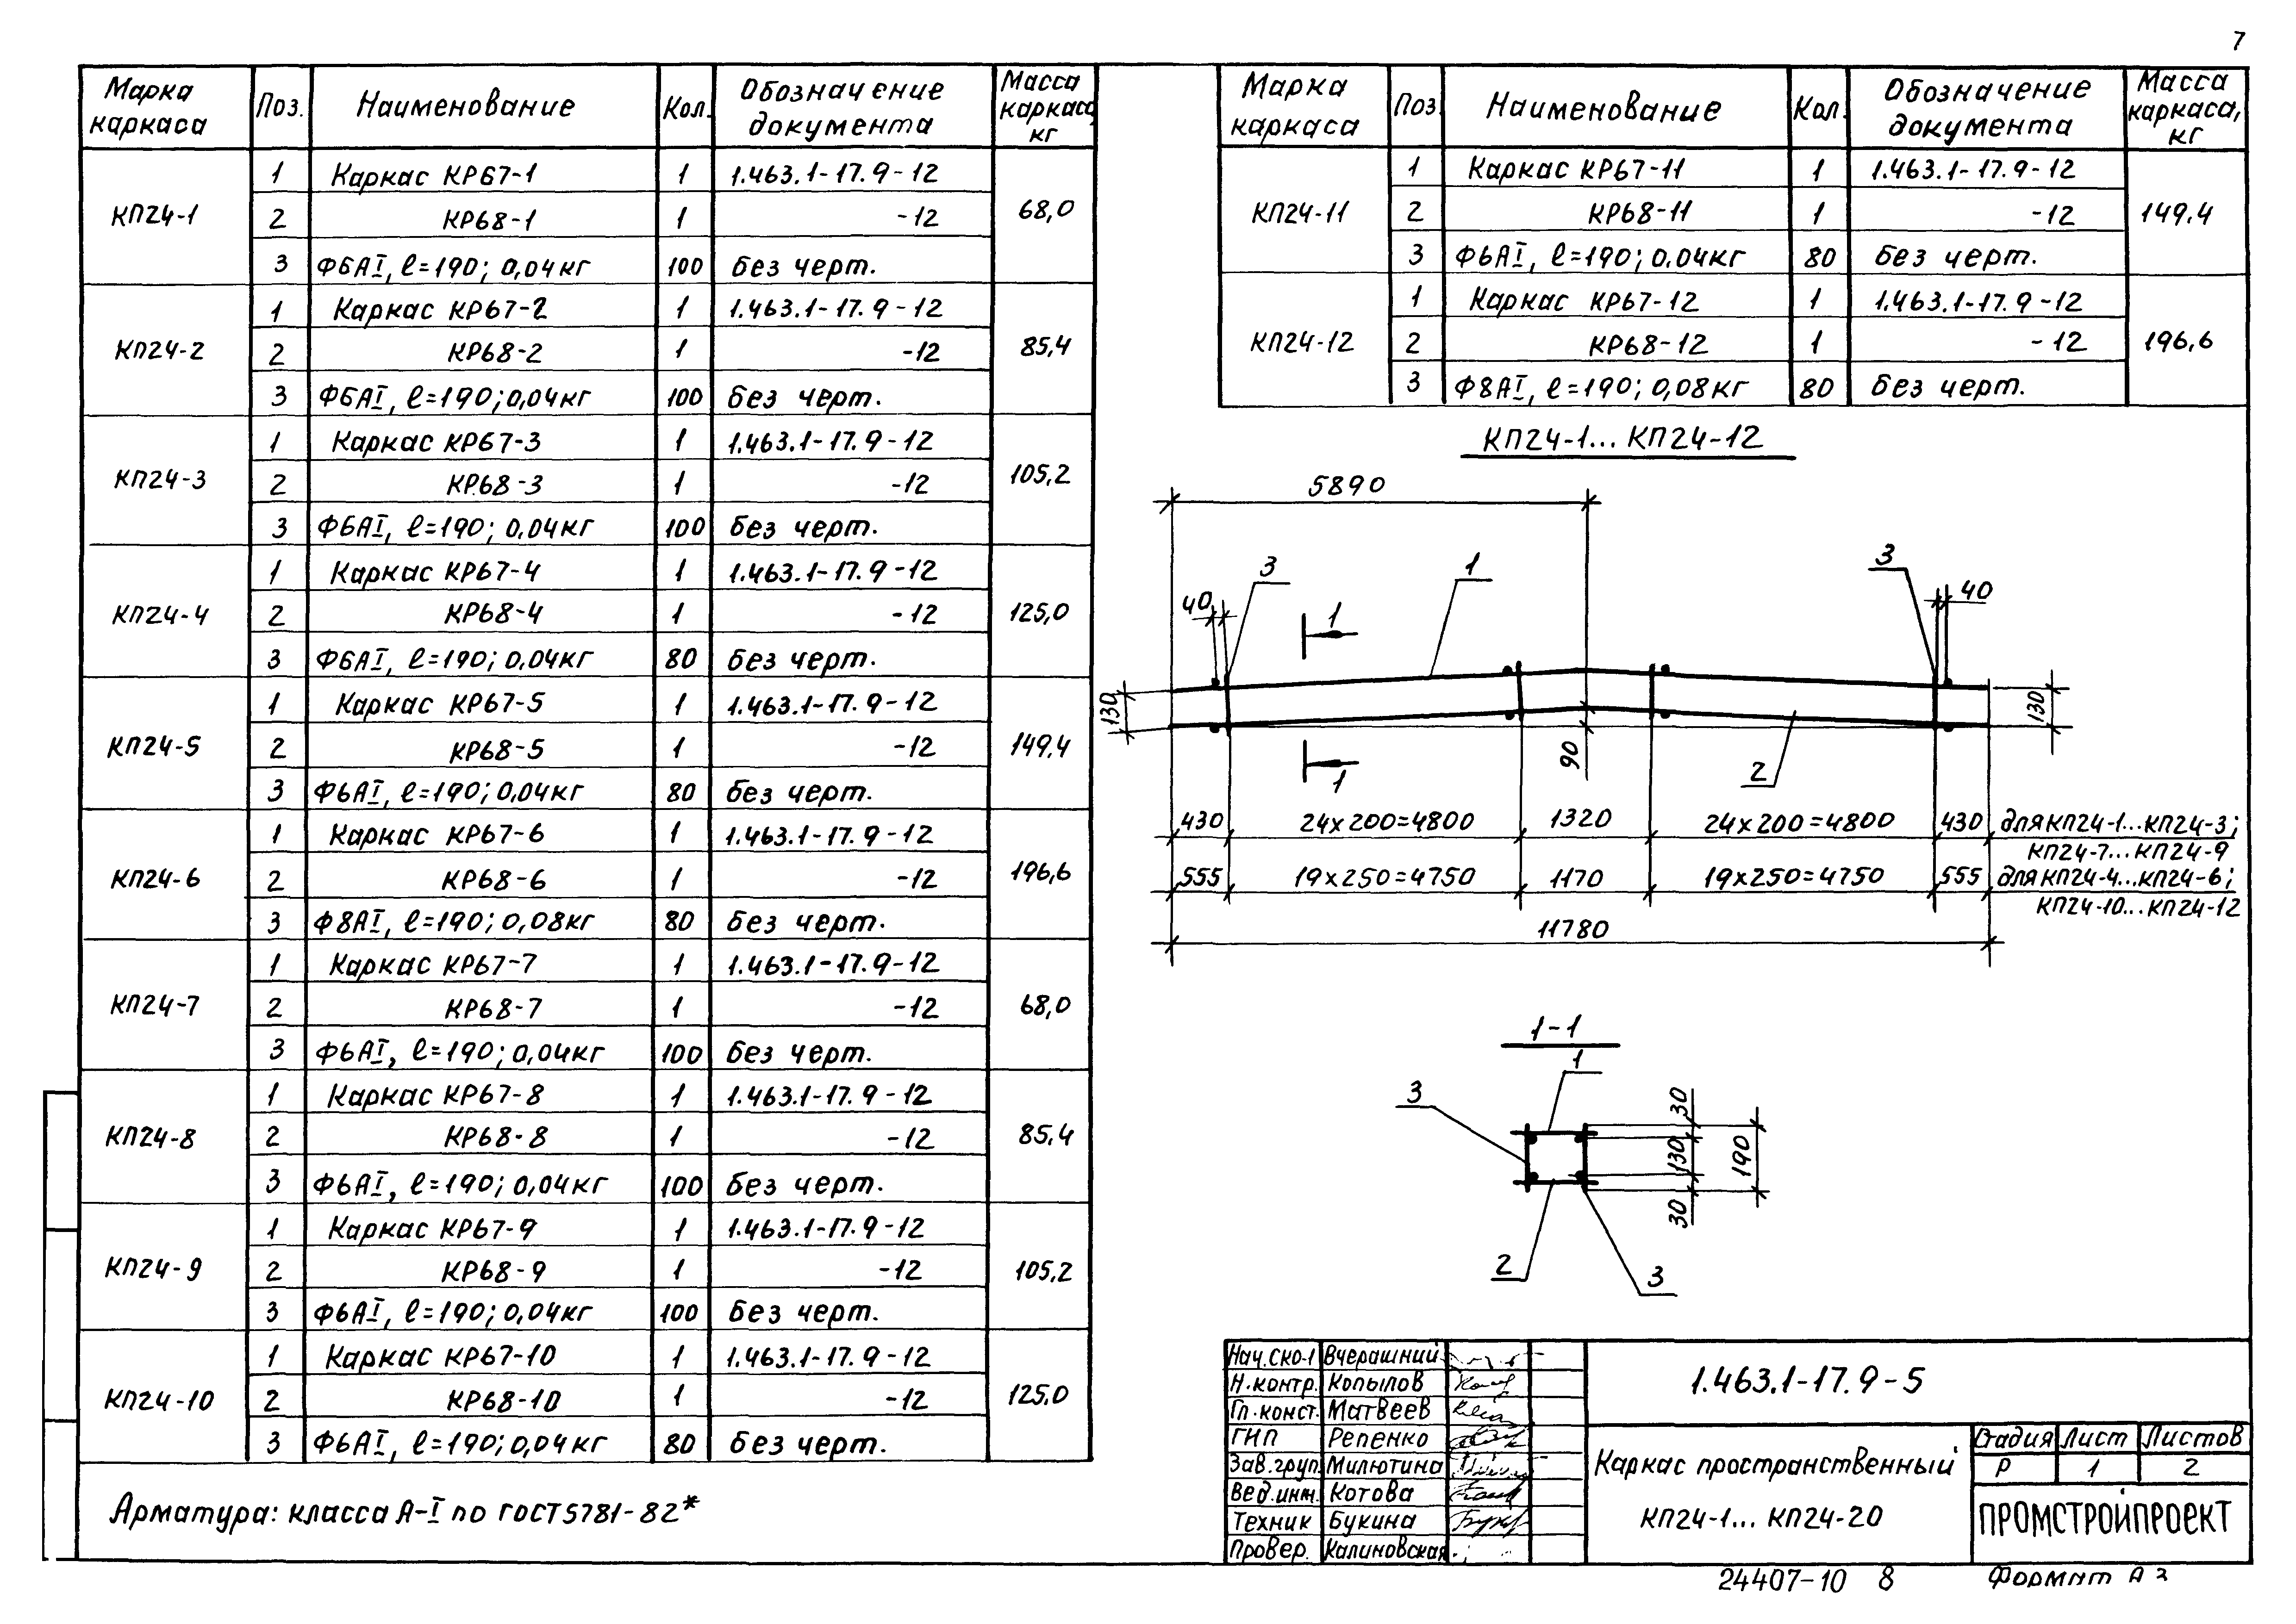 7
Марка каркаса Поз. Наименование Кол. Обозначение документа Масса каркаса, кг
КП24-1 68,0
1 Каркас КР67-1 1 1.463.1-17.9-12
2 КР68-1 1 -12
3 Ф6АI, ℓ=190; 0,04кг 100 без черт.
КП24-2 85,4
1 Каркас КР67-2 1 1.463.1-17.9-12
2 КР68-2 1 -12
3 Ф6АI, ℓ=190; 0,04кг 100 без черт.
КП24-3 105,2
1 Каркас КР67-3 1 1.463.1-17.9-12
2 КР68-3 1 -12
3 Ф6АI, ℓ=190; 0,04кг 100 без черт.
КП24-4 125,0
1 Каркас КР67-4 1 1.463.1-17.9-12
2 КР68-4 1 -12
3 Ф6АI, ℓ=190; 0,04кг 80 без черт.
КП24-5 149,4
1 Каркас КР67-5 1 1.463.1-17.9-12
2 КР68-5 1 -12
3 Ф6АI, ℓ=190; 0,04кг 80 без черт.
КП24-6 196,6
1 Каркас КР67-6 1 1.463.1-17.9-12
2 КР68-6 1 -12
3 Ф8АI, ℓ=190; 0,08кг 80 без черт.
КП24-7 68,0
1 Каркас КР67-7 1 1.463.1-17.9-12
2 КР68-7 1 -12
3 Ф6АI, ℓ=190; 0,04кг 100 без черт.
КП24-8 85,4
1 Каркас КР67-8 1 1.463.1-17.9-12
2 КР68-8 1 -12
3 Ф6АI, ℓ=190; 0,04кг 100 без черт.
КП24-9 105,2
1 Каркас КР67-9 1 1.463.1-17.9-12
2 КР68-9 1 -12
3 Ф6АI, ℓ=190; 0,04кг 100 без черт.
КП24-10 125,0
1 Каркас КР67-10 1 1.463.1-17.9-12
2 КР68-10 1 -12
3 Ф6АI, ℓ=190; 0,04кг 80 без черт.
Арматура: класса А-I по ГОСТ 5781-82*
Марка каркаса Поз. Наименование Кол. Обозначение документа Масса каркаса, кг
КП24-11 149.4
1 Каркас КР67-11 1 1.463.1-17.9-12
2 КР68-11 1 -12
3 Ф6АI, ℓ=190; 0.04кг 80 без черт.
КП24-12 196,6
1 Каркас КР67-12 1 1.463.1-17.9-12
2 КР68-12 1 -12
3 Ф8АI, ℓ=190; 0,08кг 80 без черт.
КП24-1... КП24-12
5890
3 1 3
40 1 40
130 130
90
1 2
430 24х200=4800 1320 24х200=4800 430 для КП24-1...КП24-3;
КП24-7...КП24-9
555 19х250=4750 1170 19х250=4750 555 для КП24-4...КП24-6;
КП24-10...КП24-12
11780
1-1
1
3
30
130 190
30
2
3
Нач.СКО-1 Вчерашний
Н.контр. Копылов
Гл.конст. Матвеев
ГИП Репенко
Зав.груп. Милютина
Вед.инж. Котова
Техник Букина
Провер. Калиновская
1.463.1-17.9-5
Каркас пространственный
КП24-1... КП24-20
Стадия Лист Листов
Р 1 2
ПРОМСТРОЙПРОЕКТ
24407-10 8 Формат А2